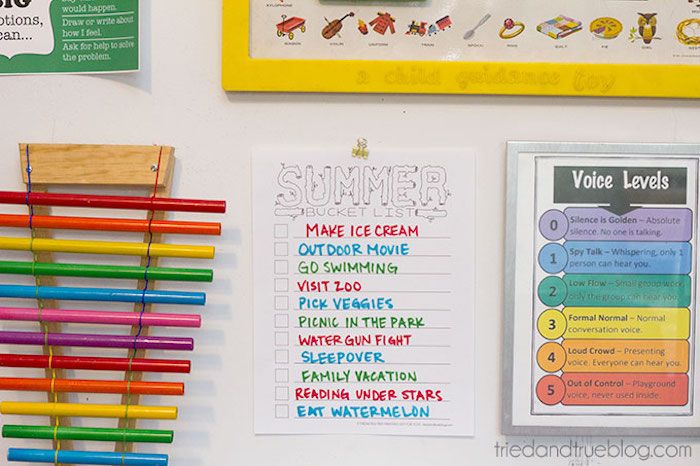 would happen.
otions,
Draw or write about
can...
how I feel.
Ask for help to solve
the problem.
XYLOPHONE
WAGON VIOLIN UNIFORM TRAIN SPOON RING QUILT PIE OWL
a child guidance toy
SUMMER
BUCKET LIST
MAKE ICE CREAM
OUTDOOR MOVIE
GO SWIMMING
VISIT ZOO
PICK VEGGIES
PICNIC IN THE PARK
WATER GUN FIGHT
SLEEPOVER
FAMILY VACATION
READING UNDER STARS
EAT WATERMELON
Voice Levels
0 Silence is Golden – Absolute
silence. No one is talking.
1 Spy Talk – Whispering, only 1
person can hear you.
2 Low Flow – Small group work,
only the group can hear you.
3 Formal Normal – Normal
conversation voice.
4 Loud Crowd – Presenting
voice. Everyone can hear you.
5 Out of Control – Playground
voice, never used inside.
triedandtrueblog.com